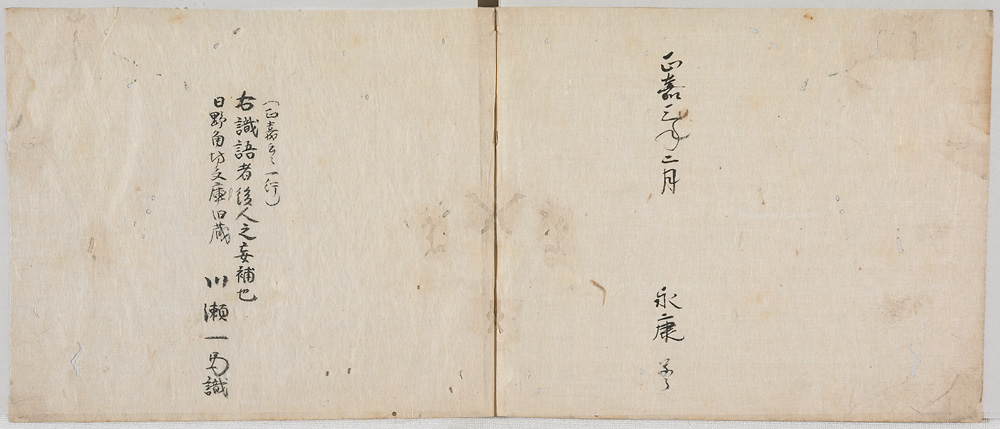 正嘉三年二月
永康
(正嘉云々一行)
右識語者後人之妄補也
日野角坊文庫旧蔵
川瀬一馬識